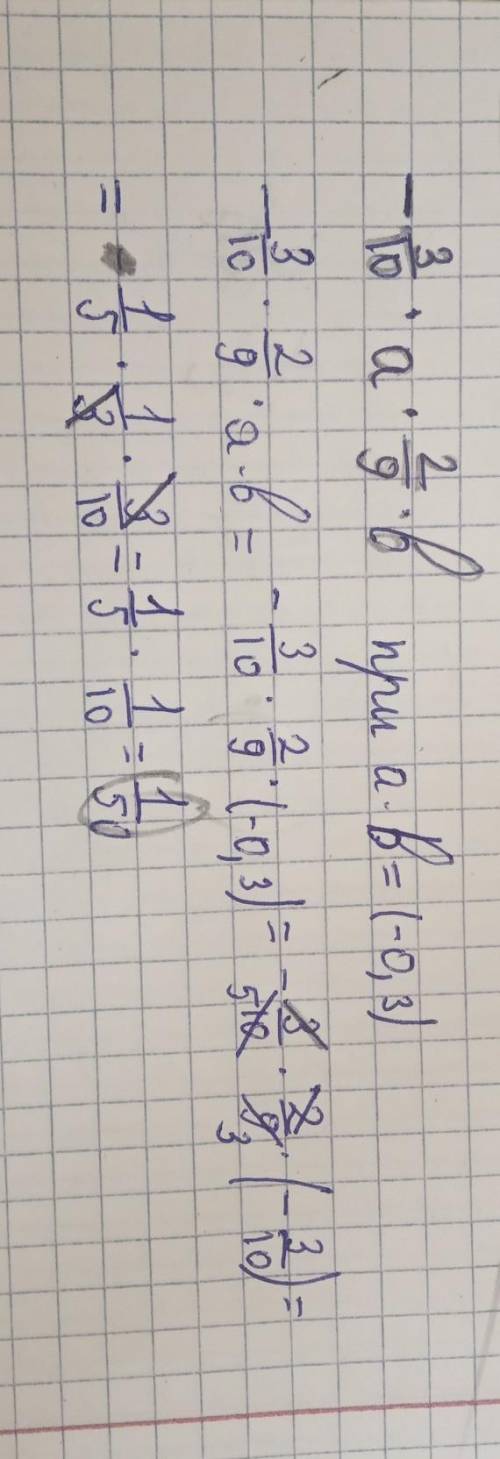 - 3/10 · a · 2/9 · b при a · b = (-0,3)
- 3/10 · 2/9 · a · b = - 3/10 · 2/9 · (-0,3) = - 3/10 5 · 2/9 3 · (- 3/10) =
= 1/5 · 1/3 · 3/10 = 1/5 · 1/10 = 1/50